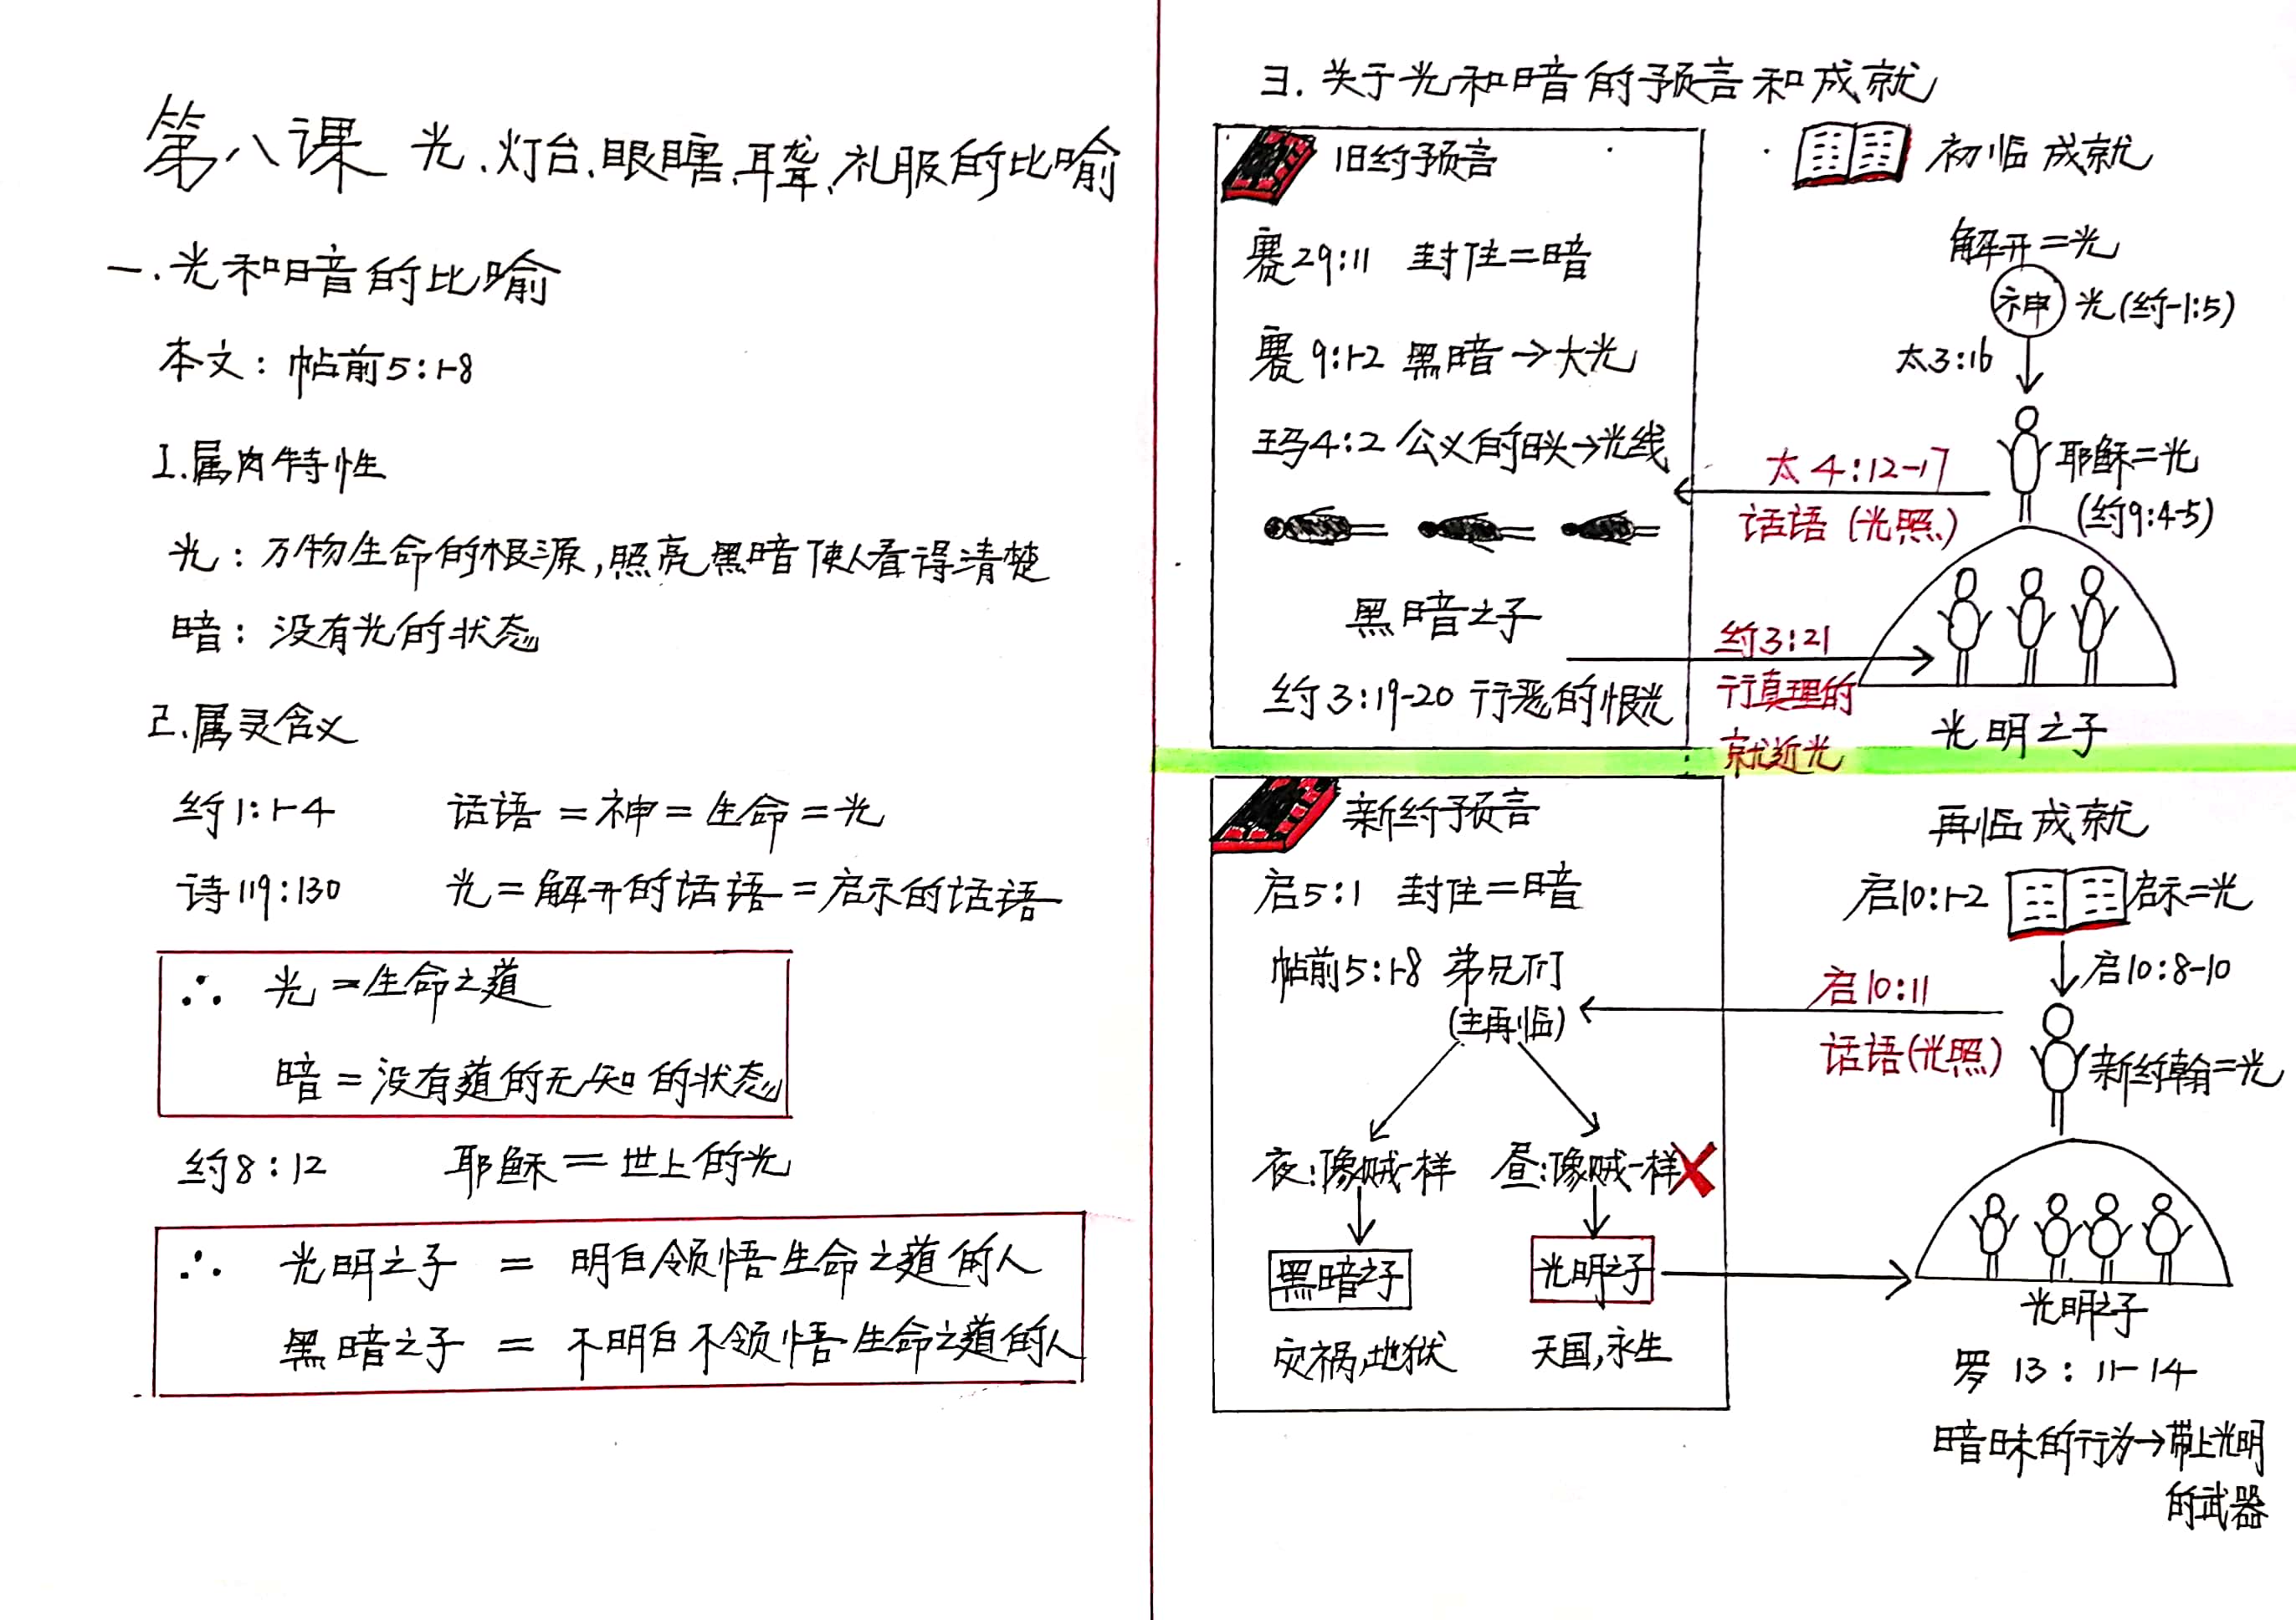 第八课 光、灯台、眼瞎、耳聋、礼服的比喻
一.光和暗的比喻
本文：帖前5:1-8
1.属肉特性
光：万物生命的根源,照亮黑暗使人看得清楚
暗：没有光的状态
2.属灵含义
约1:1-4 话语=神=生命=光
诗119:130 光=解开的话语=启示的话语
∴ 光=生命之道
暗=没有道的无知的状态
约8:12 耶稣=世上的光
∴ 光明之子 = 明白领悟生命之道的人
黑暗之子 = 不明白不领悟生命之道的人
3.关于光和暗的预言和成就
旧约预言
赛29:11 封住=暗
赛9:1-2 黑暗→大光
玛4:2 公义的日头→光线
黑暗之子
约3:19-20 行恶的恨光
初临成就
解开=光
神 光(约一1:5)
太3:16
耶稣=光
(约9:4-5)
太4:12-17
话语(光照)
约3:21
行真理的
就近光
光明之子
新约预言
启5:1 封住=暗
帖前5:1-8 弟兄们
(主再临)
夜:像贼一样 昼:像贼一样
黑暗之子 光明之子
灾祸,地狱 天国,永生
再临成就
启10:1-2 启示=光
启10:8-10
启10:11
话语(光照)
新约翰=光
光明之子
罗13:11-14
暗昧的行为→带上光明
的武器